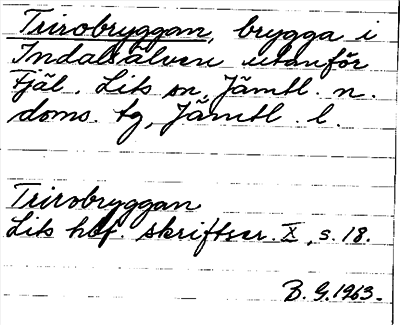 Trirobryggan, brygga i
Indalsälven utanför
Fjäl. Lits sn, Jämtl. n.
doms. tg, Jämtl. l.
Trirobryggan
Lits hbf. skriftser. X, s. 18.
B. G. 1963.